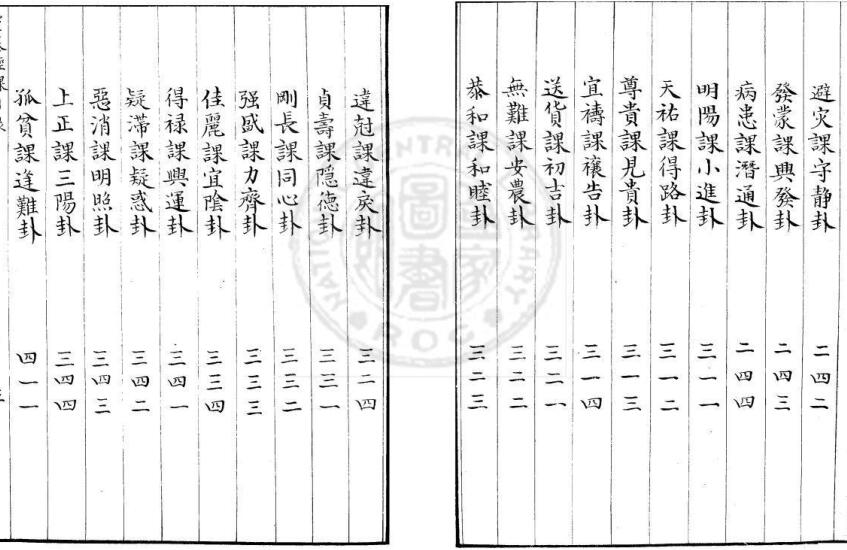 避灾課守静卦 二四二
發蒙課興發卦 二四三
病患課潛通卦 二四四
明陽課小進卦 三一一
天祐課得路卦 三一二
尊貴課見貴卦 三一三
宜禱課禳告卦 三一四
送貨課初吉卦 三二一
無難課安農卦 三二二
恭和課和睦卦 三二三
違冠課違戾卦 三二四
貞壽課隱德卦 三三一
剛長課同心卦 三三二
强盛課力齊卦 三三三
佳麗課宜陰卦 三三四
得禄課興運卦 三四一
疑滯課疑惑卦 三四二
惡消課明照卦 三四三
上正課三陽卦 三四四
孤貧課逢難卦 四一一
NATIONAL CENTRAL LIBRARY
ROC
國家圖書